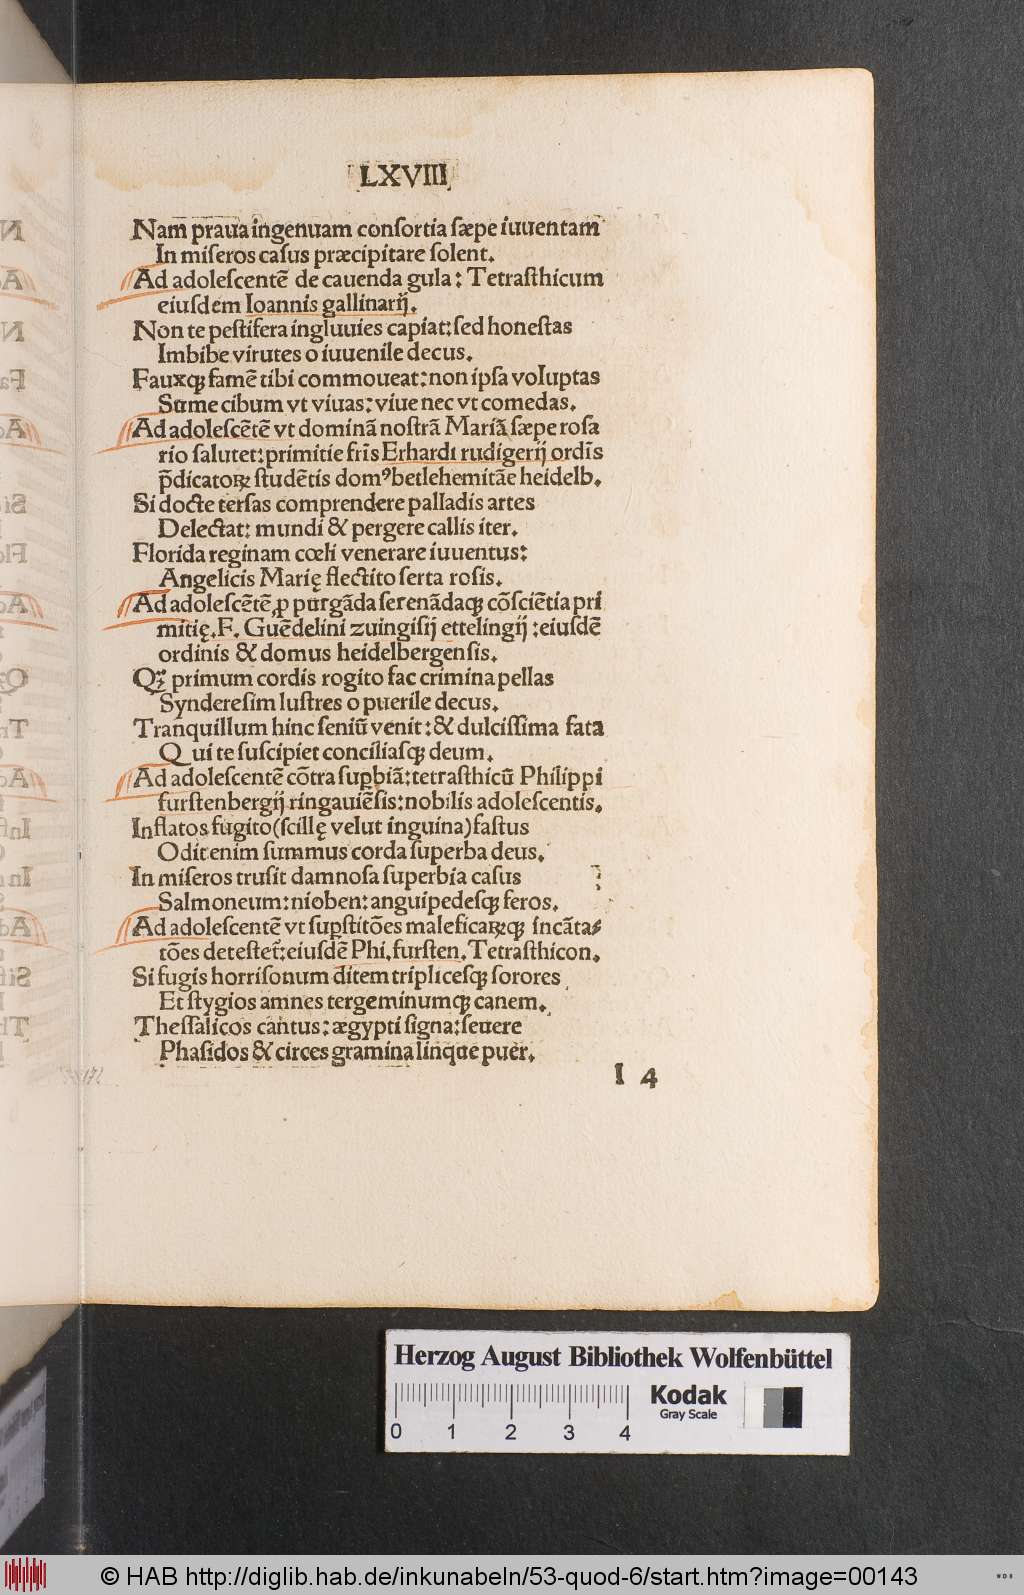 LXVIII
Nam praua ingenuam conſortia ſæpe iuuentam
In miſeros caſus præcipitare ſolent.
Ad adoleſcentē de cauenda gula: Tetraſthicum
eiuſdem Ioannis gallinarij.
Non te peſtifera ingluuies capiat: ſed honeſtas
Imbibe virutes o iuuenile decus.
Fauxqꝫ famē tibi commoueat: non ipſa voluptas
Sume cibum vt viuas: viue nec vt comedas.
Ad adoleſcētē vt dominā noſtrā Mariā ſæpe roſa
rio ſalutet: primitie fr̄is Erhardi rudigerij ordīs
p̄dicatoꝝ ſtudētis domꝰ betlehemitāe heidelb.
Si docte terſas comprendere palladis artes
Delectat: mundi & pergere callis iter.
Florida reginam cœli venerare iuuentus:
Angelicis Marię flectito ſerta roſis.
Ad adoleſcētē ꝓ purgāda ſerenādaqꝫ cōſciētia pri
mitię. F. Guēdelini zuingiſij ettelingij: eiuſdē
ordinis & domus heidelbergenſis.
Qꝫ primum cordis rogito fac crimina pellas
Syndereſim luſtres o puerile decus.
Tranquillum hinc ſeniū venit: & dulciſſima fata
Qui te ſuſcipiet conciliaſqꝫ deum.
Ad adoleſcentē cōtra ſuꝑbiā: tetraſthicū Philippi
furſtenbergij ringauiēſis: nobilis adoleſcentis.
Inflatos fugito (ſcillę velut inguina) faſtus
Odit enim ſummus corda ſuperba deus.
In miſeros truſit damnoſa ſuperbia caſus
Salmoneum: nioben: anguipedeſqꝫ feros.
Ad adoleſcentē vt ſuꝑſtitōes maleficaꝝqꝫ incāta⸗
tōes deteſtet̄: eiuſdē Phi. furſten. Tetraſthicon.
Si fugis horriſonum ditem tripliceſqꝫ ſorores
Et ſtygios amnes tergeminumqꝫ canem.
Theſſalicos cantus: ægypti ſigna: ſeuere
Phaſidos & circes gramina linque puer.
I 4
Herzog August Bibliothek Wolfenbüttel
Kodak
Gray Scale
0 1 2 3 4
© HAB http://diglib.hab.de/inkunabeln/53-quod-6/start.htm?image=00143